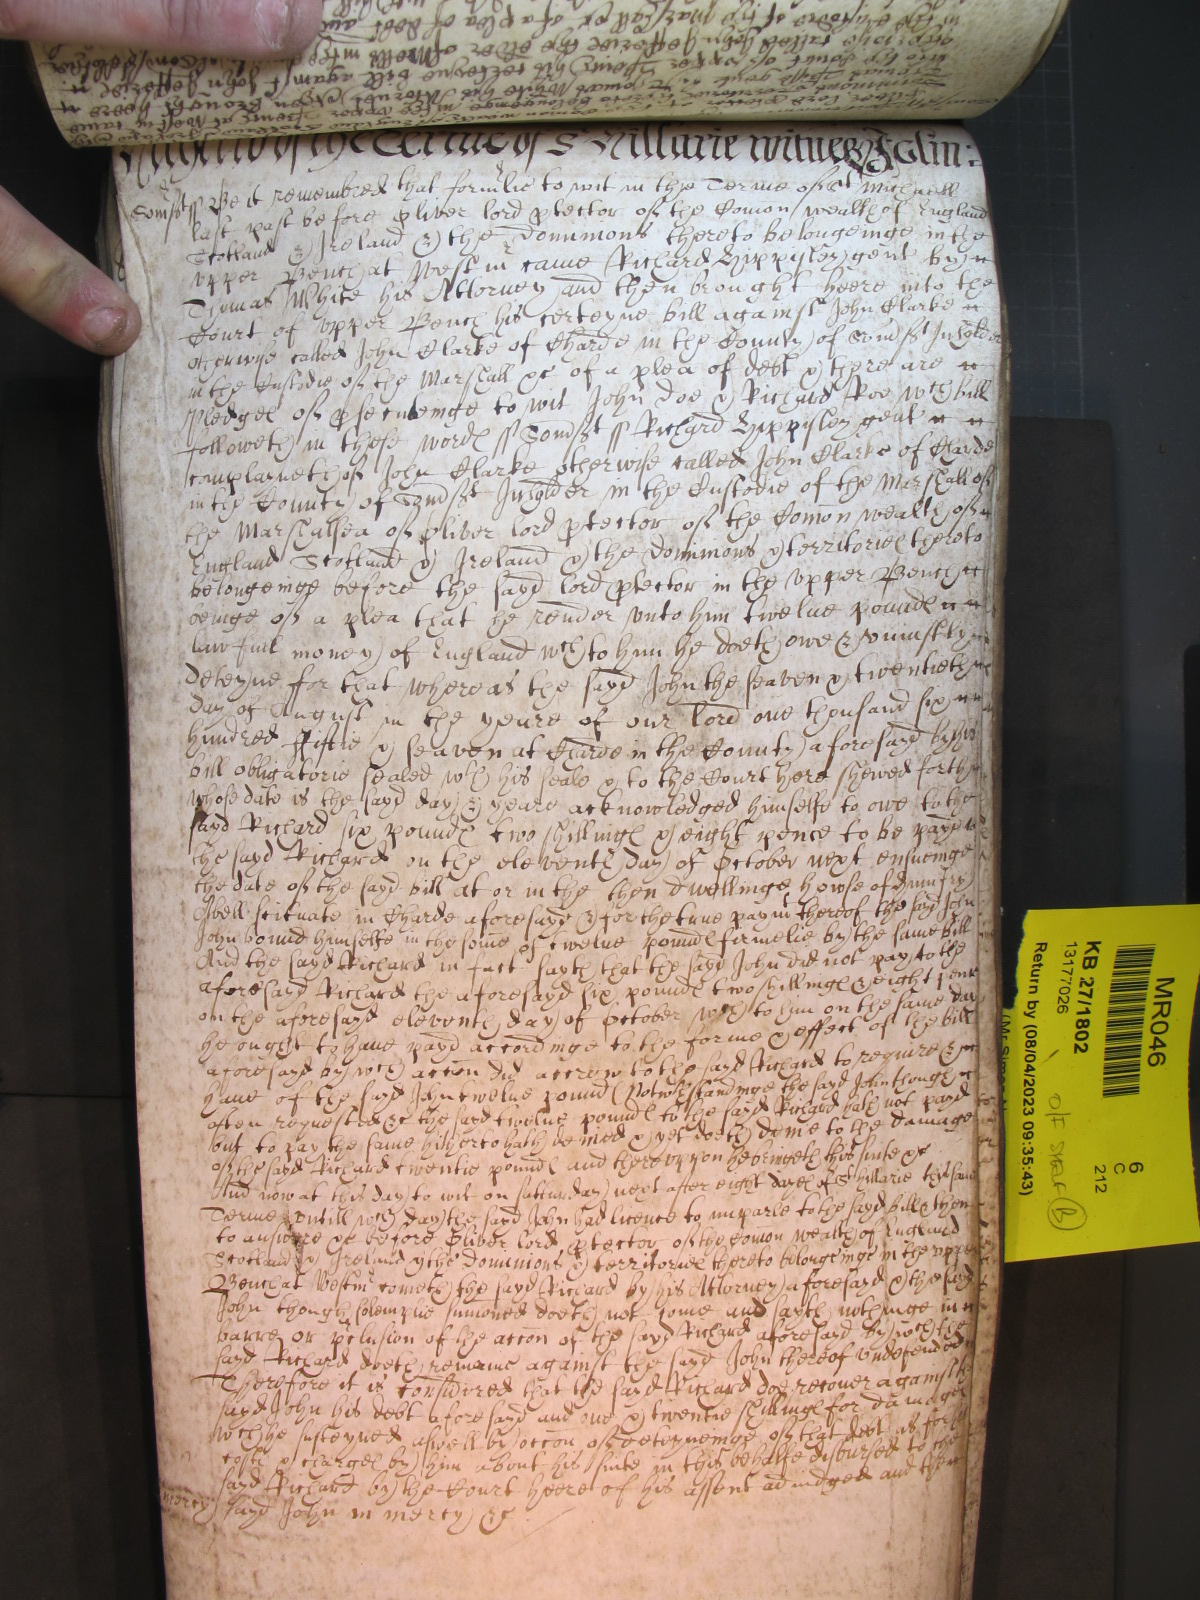 of the Terme of St Hillarie witnes J Glin:
Somst ss Be it remembred that formlie to wit in the Terme of st Michaell
last past before Oliver lord ptector of the Comon wealth of England
Scotland & Ireland & the Dominions thereto belongeinge in the
upper Bench at Westm came Richard Hippisley gent by
Thomas White his Attorney and then brought heere into the
Court of upper Bench his certeyne bill against John Clarke
otherwise called John Clarke of Charde in the County of Somst Inholder
in the Custodie of the Marshall &c of a plea of debt & there are
pledges of psecuteinge to wit John Doe & Richard Roe wch bill
followeth in these words ss Somst ss Richard Hippisley gent
complayneth of John Clarke otherwise called John Clarke of Charde
in the County of Somst Inholder in the Custodie of the Marshall of
the Marshalsea of Oliver lord ptector of the Comon wealth of
England Scotland & Ireland & the Dominions & territories thereto
belongeinge before the sayd lord ptector in the upper Bench
beinge of a plea that he render unto him twelve pounds
lawfull money of England wch to him he doeth owe & uniustly
deteyne for that whereas the sayd John the seaven & twentieth
day of August in the yeare of our lord one thousand six
hundred fiftie & seaven at Charde in the County aforesayd by his
bill obligatorie sealed wth his seale & to the Court here shewed forth
whose date is the sayd day & yeare acknowledged himselfe to owe to the
sayd Richard six pounds two shillings & eight pence to be payd to
the sayd Richard on the eleventh day of October next ensueinge
the date of the sayd bill at or in the then dwellinge howse of Humfry
Isbell scituate in Charde aforesayd & for the true paymt thereof the sayd John
John bound himselfe in the some of twelve pounds firmelie by the same bill
And the sayd Richard in fact sayth that the sayd John did not pay to the
aforesayd Richard the aforesayd six pounds two shillings & eight pence
on the aforesayd eleventh day of October wch to him on the same day
he ought to have payd accordinge to the forme & effect of the bill
aforesayd by wch accon did accrew to the sayd Richard to require &
have of the sayd John twelve pounds Notwithstandinge the sayd John though
often requested &c the sayd twelve pounds to the sayd Richard hath not payd
but to pay the same hitherto hath denied & yet doeth denie to the damage
of the sayd Richard twentie pounds and thereuppon he bringeth this suite &c
And now at this day to wit on saturday next after eight dayes of st Hillarie this same
Terme untill wch day the sayd John had licence to imparle to the sayd bill & then
to answere &c before Oliver lord ptector of the Comon wealth of England
Scotland & Ireland & the Dominions & territories thereto belongeinge in the upper
Bench at Westm cometh the sayd Richard by his Attorney aforesayd & the sayd
John though solempnie sumoned doeth not come and sayth nothinge in
barre or pclusion of the accon of the sayd Richard aforesayd by wch the
sayd Richard doeth remaine against the sayd John thereof undefended
Therefore it is considered that the sayd Richard doe recover against the
sayd John his debt aforesayd and one & twentie shillings for damages
wch he susteyned aswell by occon of deteyneinge of that debt as for his
costs & charges by him about his suite in this behalfe disbursed to the
sayd Richard by the Court heere of his assent adiudged and the
mercy sayd John in mercy &c
MR046
KB 27/1802
13177026
6
C
212
Return by (08/04/2023 09:35:43)